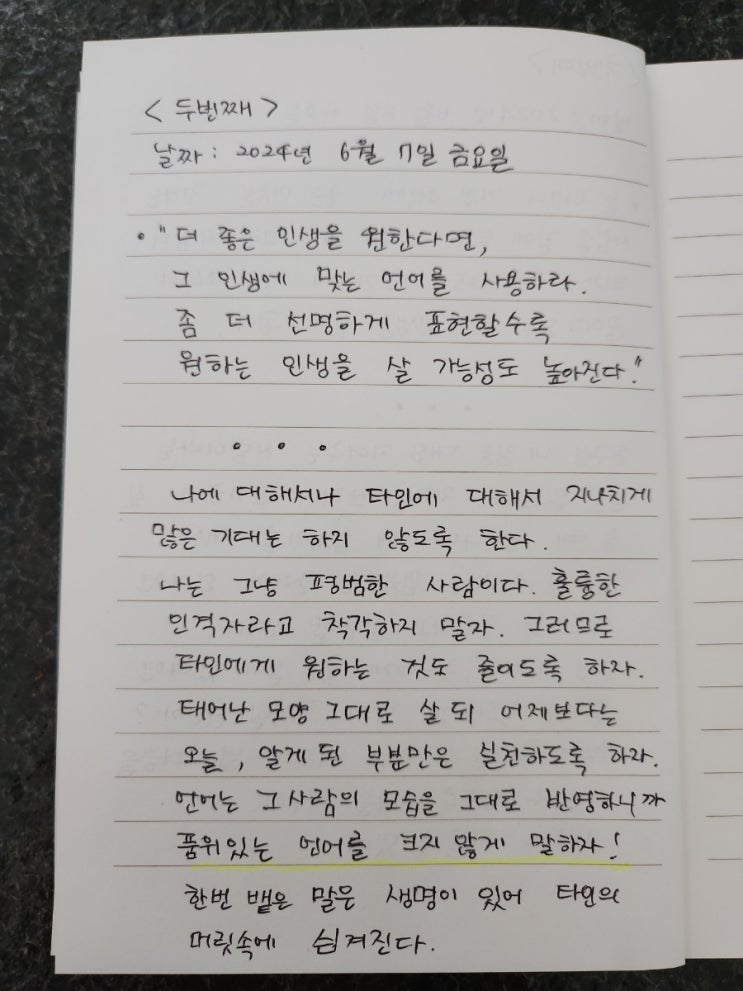 < 두번째 >
날짜 : 2024년 6월 7일 금요일
• "더 좋은 인생을 원한다면,
그 인생에 맞는 언어를 사용하라.
좀 더 선명하게 표현할수록
원하는 인생을 살 가능성도 높아진다."
• • •
나에 대해서나 타인에 대해서 지나치게
많은 기대는 하지 않도록 한다.
나는 그냥 평범한 사람이다. 훌륭한
인격자라고 착각하지 말자. 그러므로
타인에게 원하는 것도 줄이도록 하자.
태어난 모양 그대로 살 되 어제보다는
오늘, 알게 된 부분만은 실천하도록 하자.
언어는 그 사람의 모습을 그대로 반영하니까
품위있는 언어를 크지 않게 말하자!
한번 뱉은 말은 생명이 있어 타인의
머릿속에 심겨진다.